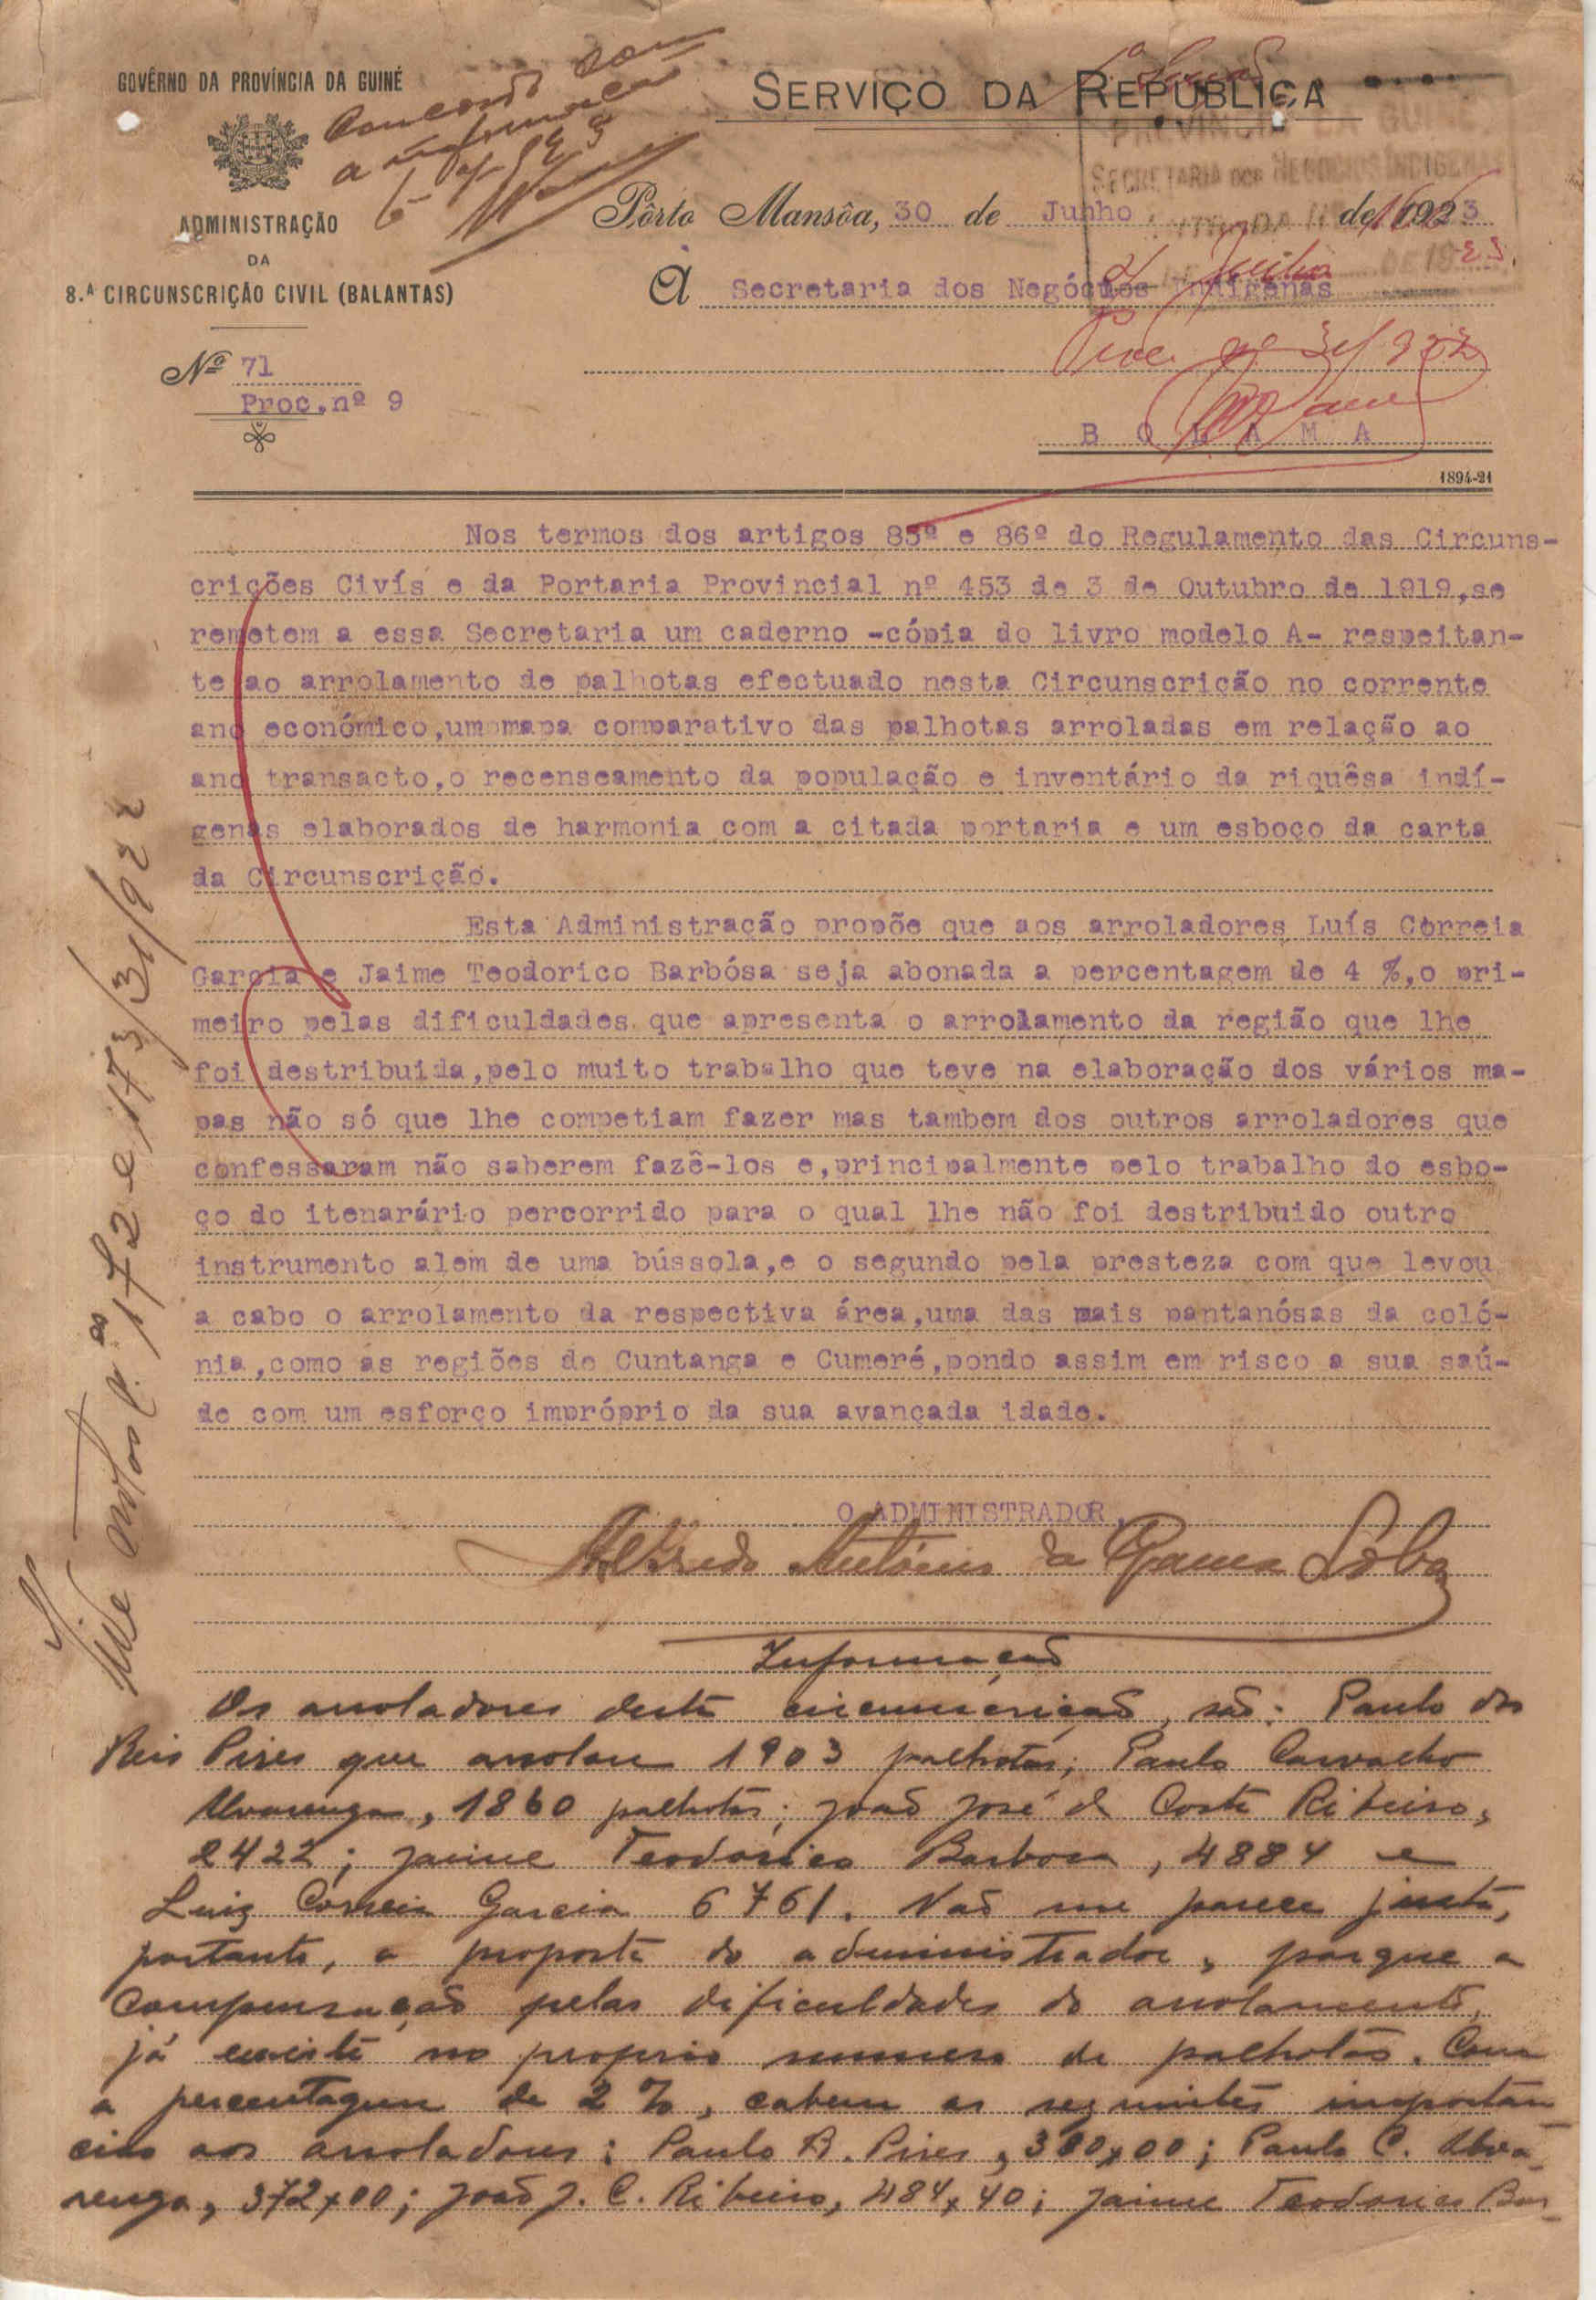 GOVÊRNO DA PROVÍNCIA DA GUINÉ
ADMINISTRAÇÃO
DA
8.ª CIRCUNSCRIÇÃO CIVIL (BALANTAS)
Nº 71
Proc.nº 9
Concordo com
a informação
SERVIÇO DA REPÚBLICA
PROVÍNCIA DA GUINÉ
SECRETARIA DOS NEGOCIOS INDIGENAS
ENTRADA Nº
Julho DE 1923.
Pôrto Mansôa, 30 de Junho de 1923
À Secretaria dos Negócios Indígenas
B O L A M A
1894-21
Nos termos dos artigos 85º e 86º do Regulamento das Circuns-
crições Civís e da Portaria Provincial nº 453 de 3 de Outubro de 1919,se
remetem a essa Secretaria um caderno -cópia do livro modelo A- respeitan-
te ao arrolamento de palhotas efectuado nesta Circunscrição no corrente
ano económico,um mapa comparativo das palhotas arroladas em relação ao
ano transacto,o recenseamento da população e inventário da riquêsa indí-
genas elaborados de harmonia com a citada portaria e um esboço da carta
da Circunscrição.
Esta Administração propõe que aos arroladores Luís Correia
Garcia e Jaime Teodorico Barbósa seja abonada a percentagem de 4 %,o pri-
meiro pelas dificuldades que apresenta o arrolamento da região que lhe
foi destribuida,pelo muito trabalho que teve na elaboração dos vários ma-
pas não só que lhe competiam fazer mas tambem dos outros arroladores que
confessaram não saberem fazê-los e,principalmente pelo trabalho do esbo-
ço do itenarário percorrido para o qual lhe não foi destribuido outro
instrumento alem de uma bússola,e o segundo pela presteza com que levou
a cabo o arrolamento da respectiva área,uma das mais pantanósas da coló-
nia,como as regiões de Cuntanga e Cumeré,pondo assim em risco a sua saú-
de com um esforço impróprio da sua avançada idade.
O ADMINISTRADOR,
Alfredo António da Gama Lôbo
Informação
Os arroladores desta circunscrição, são: Paulo dos
Reis Pires que arrolou 1903 palhotas; Paulo Carvalho
Alvarenga, 1860 palhotas; João José da Costa Ribeiro,
2422; Jaime Teodorico Barbosa, 4884 e
Luiz Correia Garcia 6761. Não me parece justa,
portanto, a proposta do administrador, porque a
compensação pelas dificuldades do arrolamento,
já existe no proprio numero de palhotas. Com
a percentagem de 2 %, cabem as seguintes importan-
cias aos arroladores: Paulo R. Pires, 380,00; Paulo C. Alva-
renga, 372,00; João J. C. Ribeiro, 484,40; Jaime Teodorico Bar-
Vide notas n.os 172 e 173/31/922